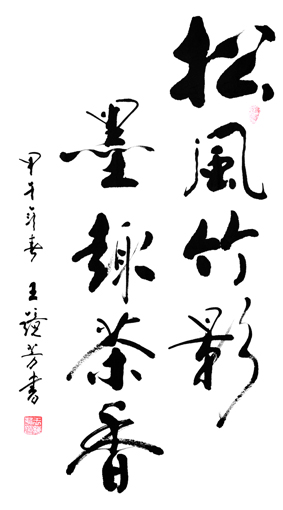 松風竹影
墨趣茶香
甲午年春 王 芳書